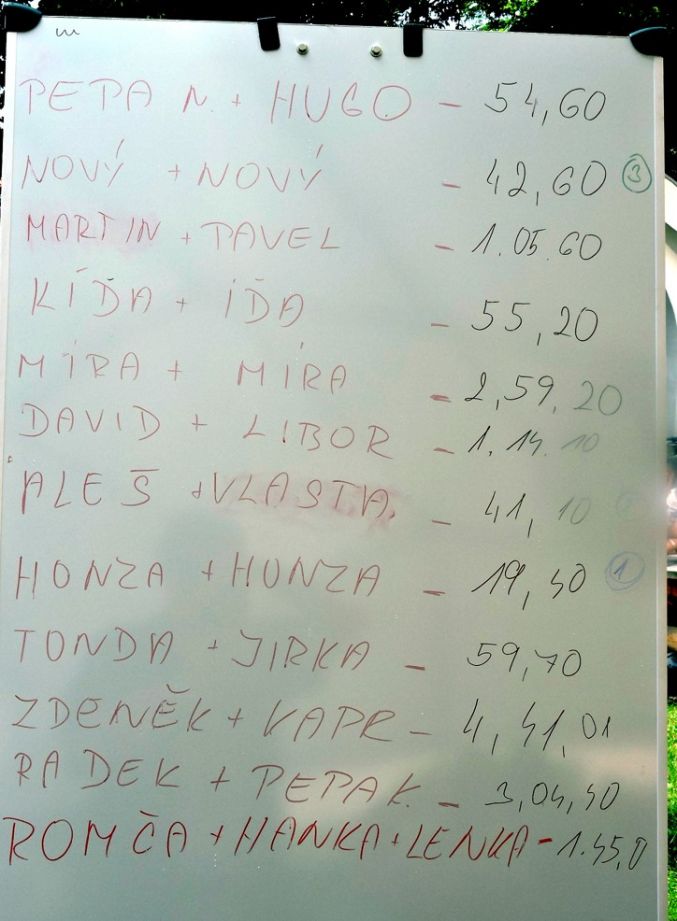 PEPA N. + HUGO - 54,60
NOVÝ + NOVÝ - 42,60 3
MARTIN + PAVEL - 1.05.60
KÍĎA + ÍĎA - 55,20
MÍRA + MÍRA - 2,59,20
DAVID + LIBOR - 1.14.10
ALEŠ + VLASTA - 41,10
HONZA + HONZA - 19,40 1
TONDA + JIRKA - 59,70
ZDENĚK + KAPR - 4,41,01
RADEK + PEPA K. - 3,04,40
ROMČA + HANKA + LENKA - 1.45,0